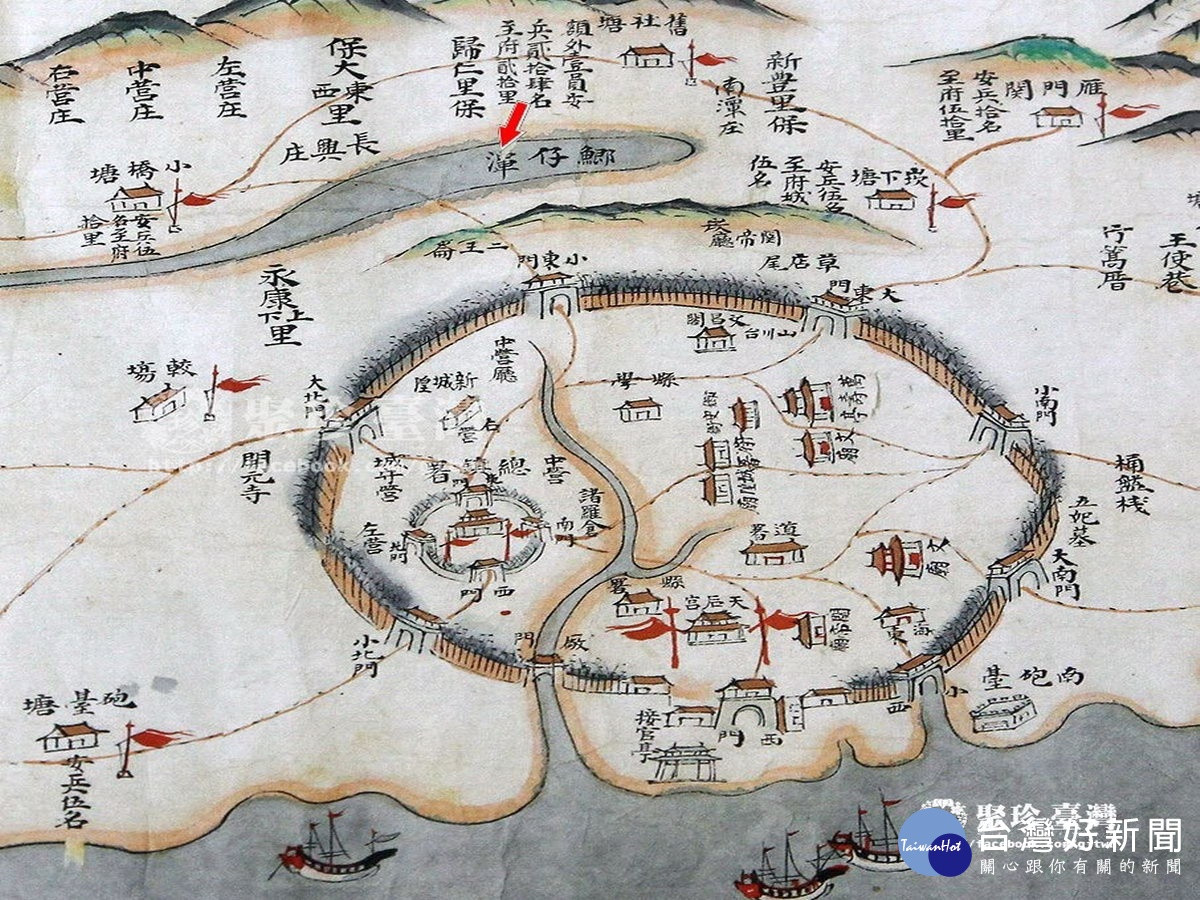 右營庄
中營庄
左營庄
保大東里
西
歸仁里保
額外壹員安
兵貳拾肆名
至府貳拾里
舊社塘
南潭庄
新豐里保
雁門関
安兵拾名
至府伍拾里
長興庄
鯽仔潭
小橋塘
安兵伍
名至府
拾里
崁下塘
安兵伍名
至府城
伍名
王使巷
行篙厝
二王崙
関帝廳
崁
草店尾
永康上下里
小東門
大東門
較塲
大北門
開元寺
中營廳
新城隍
右營
文昌閣
山川台
縣學
萬壽亭
文廟
小南門
桶盤棧
五妃墓
大南門
城守營
總
署
中營
諸羅倉
左營
北門
南門
西門
道署
府城隍廟
文廟
縣署
天后宮
関帝廟
海東
小北門
廠門
小西
西門
接官亭
南砲臺
砲臺塘
安兵伍名
聚珍臺灣
http://facebook.com/
聚珍臺灣
/facebook.com/gjtw
TaiwanHot
台灣好新聞
關心跟你有關的新聞